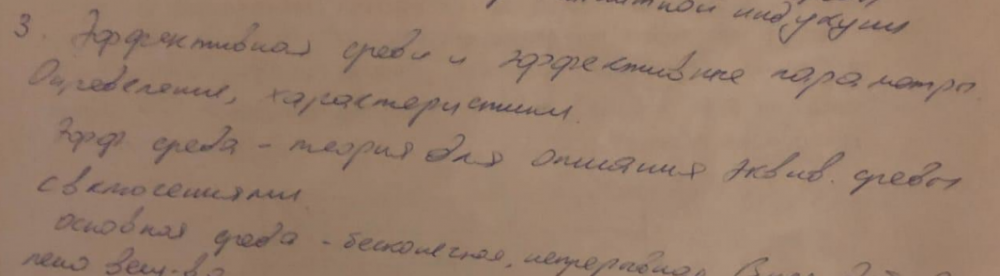 магнитной индукции
3. Эффективная среда и эффективные параметры
Определение, характеристики.
Эфф среда - теория для описания эквив. среды
с включениями
основная среда - бесконечная, непрерывная
вещ-ва